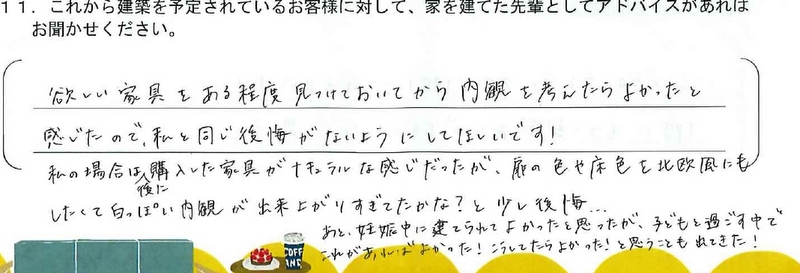 11. これから建築を予定されているお客様に対して、家を建てた先輩としてアドバイスがあれば
お聞かせください。
欲しい家具をある程度見つけておいてから内観を考えたらよかったと
感じたので、私と同じ後悔がないようにしてほしいです！
私の場合は後に購入した家具がナチュラルな感じだったが、扉の色や床色を北欧風にも
したくて白っぽい内観が出来上がりすぎてたかな？と少し後悔…
あと、妊娠中に建てられてよかったと思ったが、子どもと過ごす中で
これがあればよかった！こうしてたらよかった！と思うことも出てきた！
COFF
IND